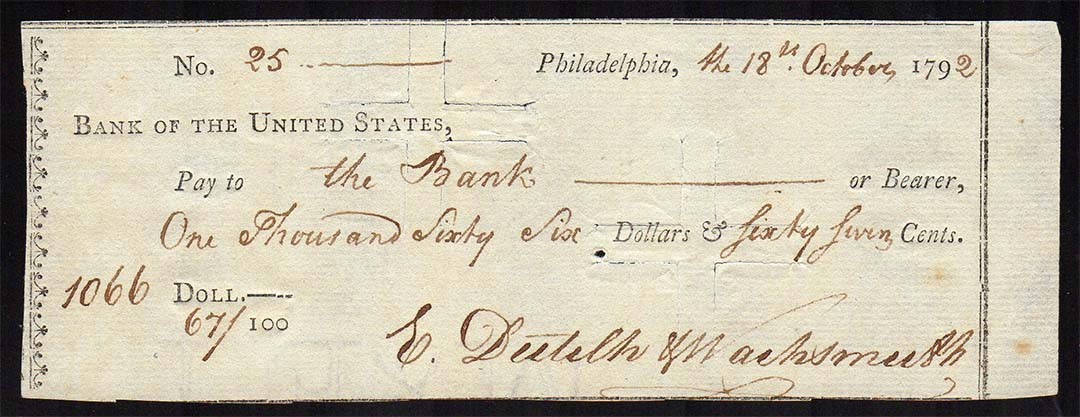 No. 25 Philadelphia, the 18th. October, 1792
BANK OF THE UNITED STATES,
Pay to the Bank or Bearer,
One Thousand Sixty Six Dollars & Sixty Seven Cents.
1066 DOLL.
67/100
E. & Wachsmuth